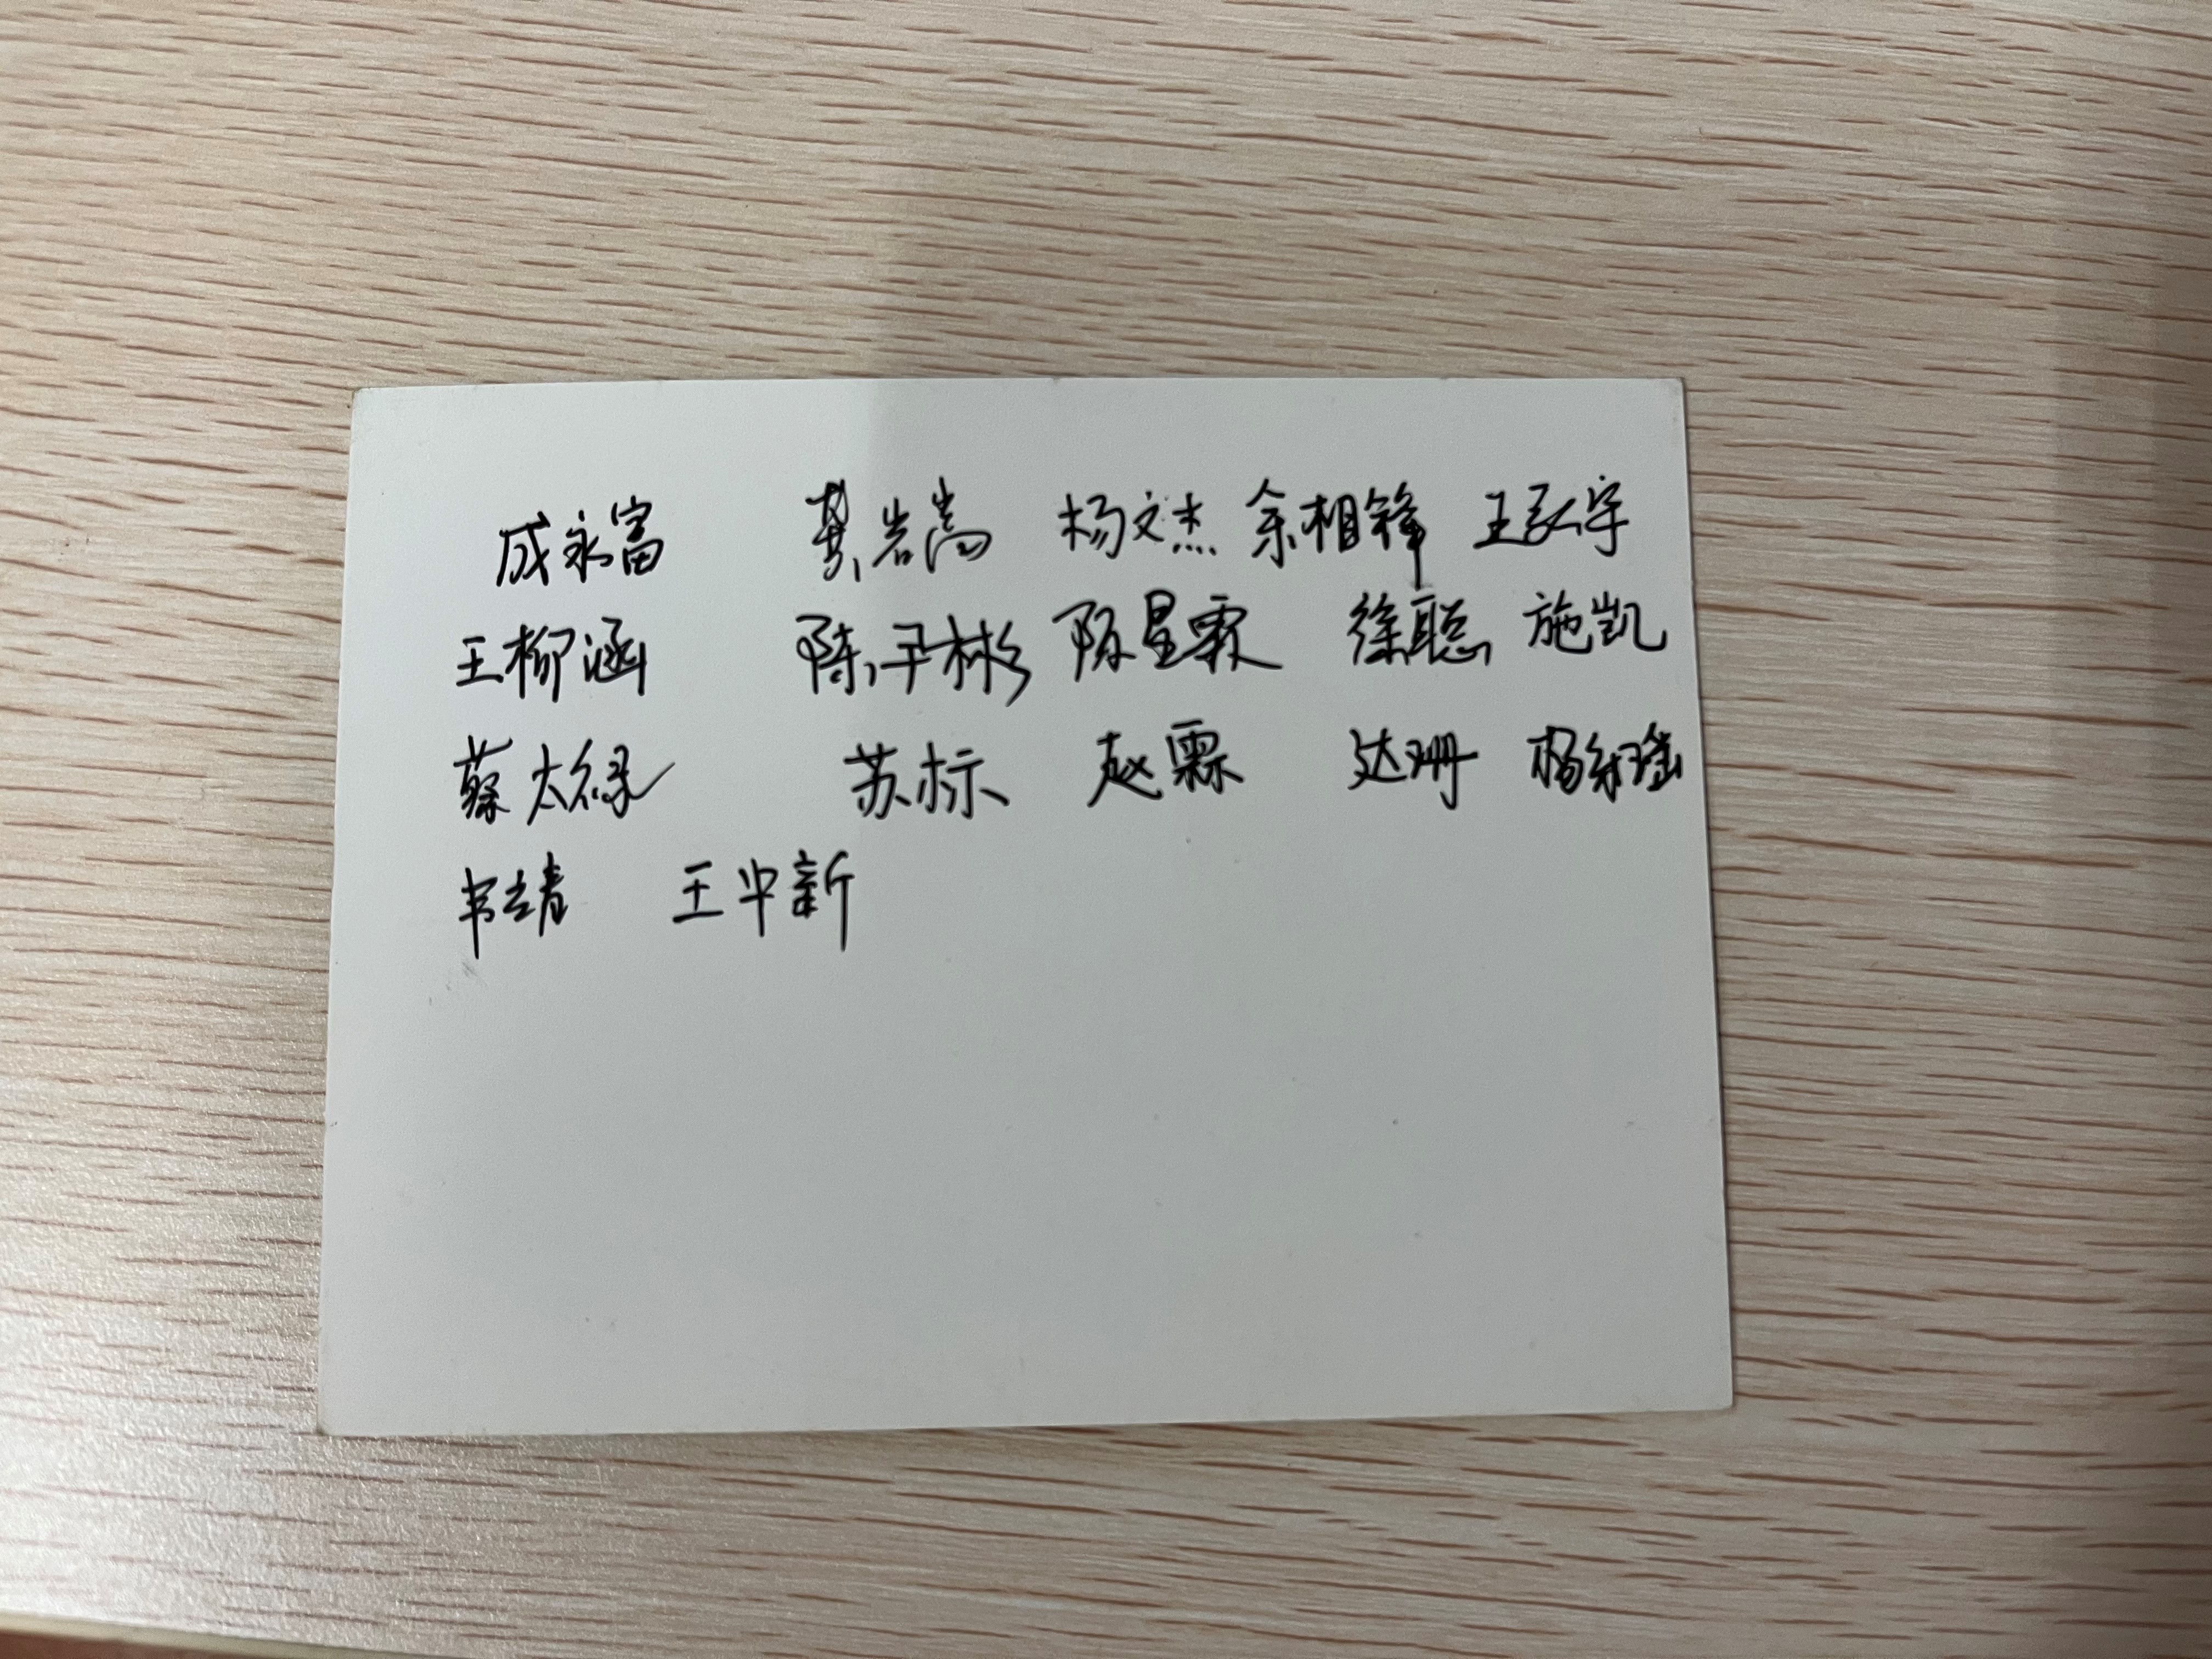 成永富 龚岩嵩 杨文杰 余相锋 王弘宇
王柳涵 陈尹彬 陈星霖 徐聪 施凯
蔡太绿 苏标 赵霖 达珊 杨
韦靖 王中新